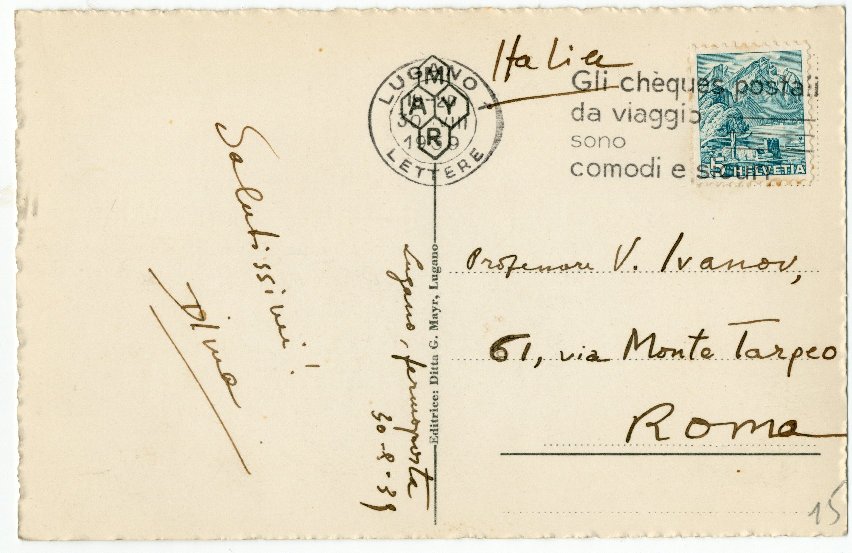 Italia
LUGANO
30. VIII
1939
LETTERE
MAYR
Gli chèques postali
da viaggio
sono
comodi e sicuri
15 HELVETIA
Salutissimi!
Dima
Lugano, fermoposta
30-8-39
Editrice: Ditta G. Mayr, Lugano
Professore V. Ivanov,
61, via Monte Tarpeo
Roma
15